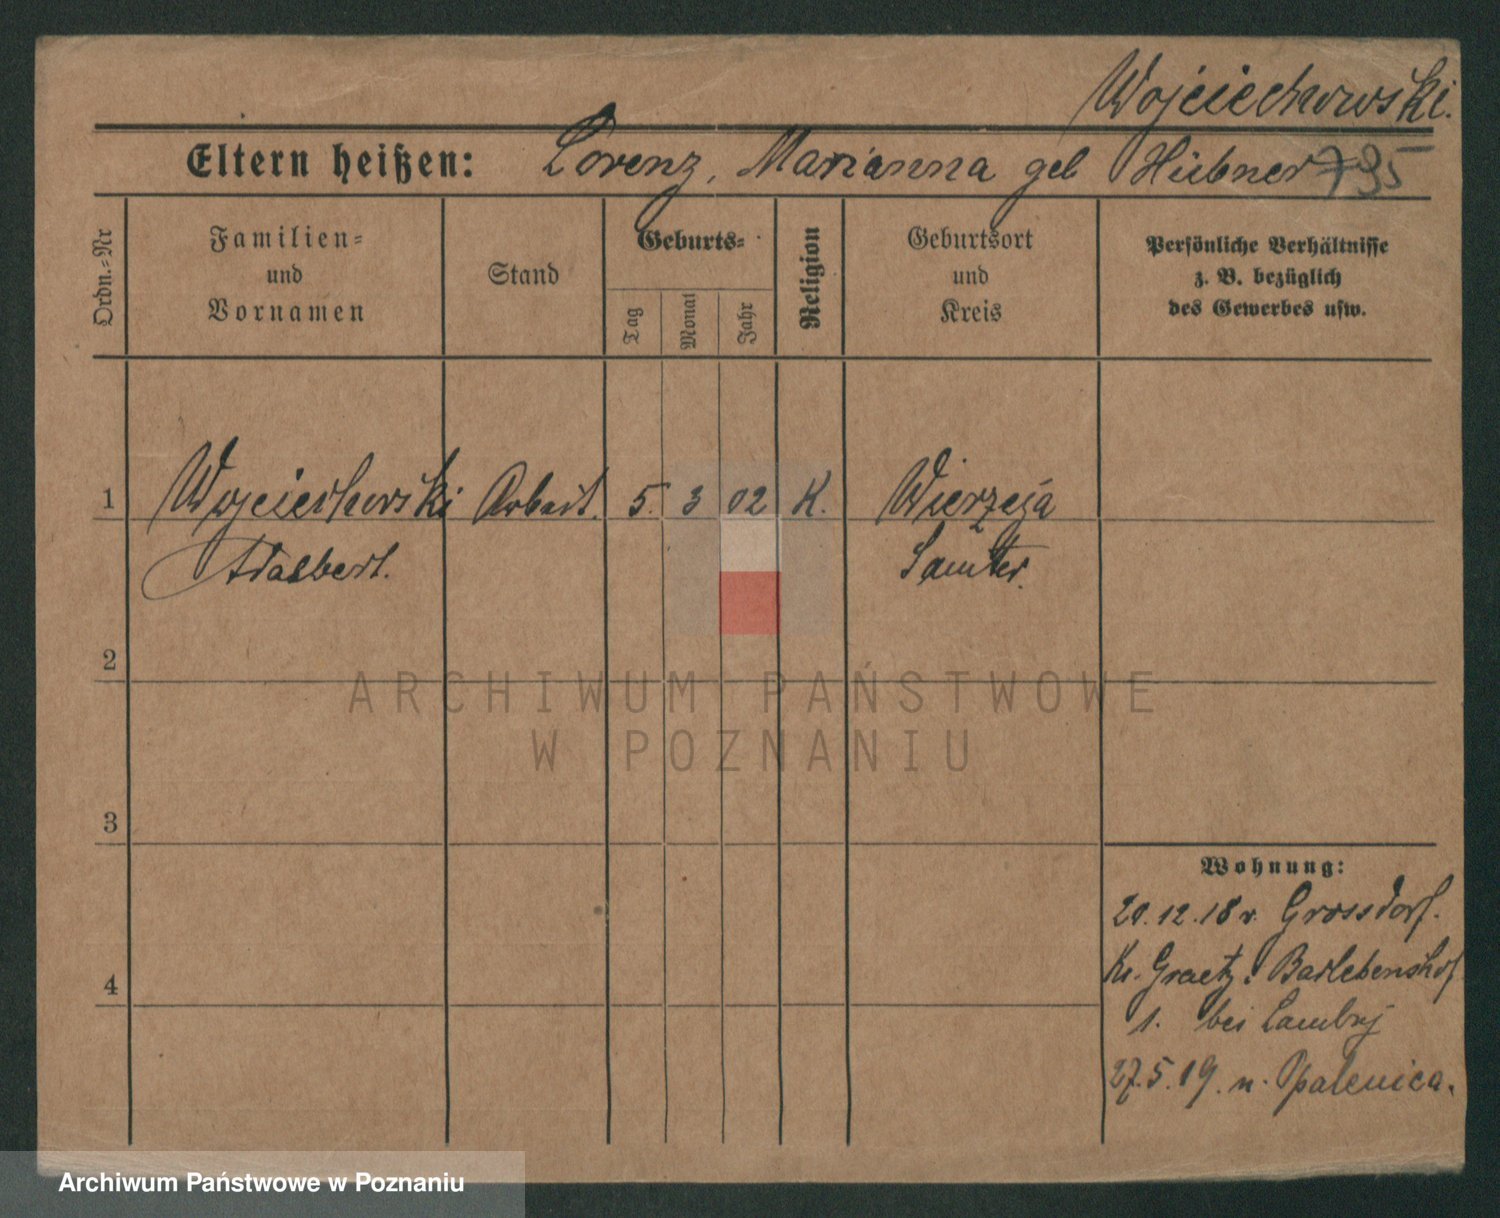 Wojciechowski.
Eltern heißen: Lorenz, Marianna geb Hübner 795
Ordn.=Nr
Familien=
und
Vornamen
Stand
Geburts=
Tag
Monat
Jahr
Religion
Geburtsort
und
Kreis
Persönliche Verhältnisse
z. B. bezüglich
des Gewerbes usw.
1 Wojciechowski Arbeit. 5. 3 02 K. Wierzeja
Adalbert. Samter.
2
ARCHIWUM PAŃSTWOWE
W POZNANIU
3
Wohnung:
20.12.18 v. Grossdorf.
Kr. Graetz. Barlebenshof
4
1. bei
27.5.19. n. Opalenica.
Archiwum Państwowe w Poznaniu